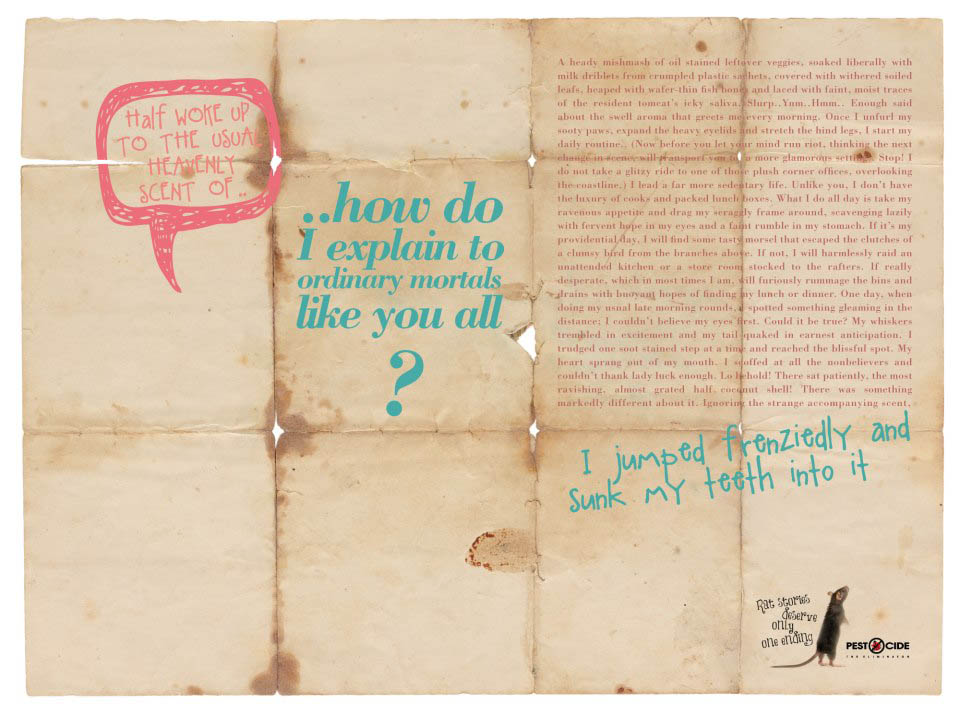 Half WOKE UP
TO THE USUAL
HEAVENLY
SCENT OF ..
..how do
I explain to
ordinary mortals
like you all
?
A heady mishmash of oil stained leftover veggies, soaked liberally with
milk driblets from crumpled plastic sachets, covered with withered soiled
leafs, heaped with wafer-thin fish bones and laced with faint, moist traces
of the resident tomcat's icky saliva. Slurp..Ymm..Hmm.. Enough said
about the swell aroma that greets me every morning. Once I unfurl my
sooty paws, expand the heavy eyelids and stretch the hind legs, I start my
daily routine.. (Now before you let your mind run riot, thinking the next
change in scene, will transport you to a more glamorous setting. Stop! I
do not take a glitzy ride to one of those plush corner offices, overlooking
the coastline.) I lead a far more sedentary life. Unlike you, I don't have
the luxury of cooks and packed lunch boxes. What I do all day is take my
ravenous appetite and drag my scraggly frame around, scavenging lazily
with fervent hope in my eyes and a faint rumble in my stomach. If it's my
providential day, I will find some tasty morsel that escaped the clutches of
a clumsy bird from the branches above. If not, I will harmlessly raid an
unattended kitchen or a store room stocked to the rafters. If really
desperate, which in most times I am, will furiously rummage the bins and
drains with buoyant hopes of finding my lunch or dinner. One day, when
doing my usual late morning rounds, I spotted something gleaming in the
distance; I couldn't believe my eyes first. Could it be true? My whiskers
trembled in excitement and my tail quaked in earnest anticipation. I
trudged one soot stained step at a time and reached the blissful spot. My
heart sprang out of my mouth. I scoffed at all the nonbelievers and
couldn't thank lady luck enough. Lo behold! There sat patiently, the most
ravishing, almost grated half coconut shell! There was something
markedly different about it. Ignoring the strange accompanying scent,
I jumped frenziedly and
sunk my teeth into it
Rat stories
deserve
only
one ending
PESTOCIDE
THE ELIMINATOR